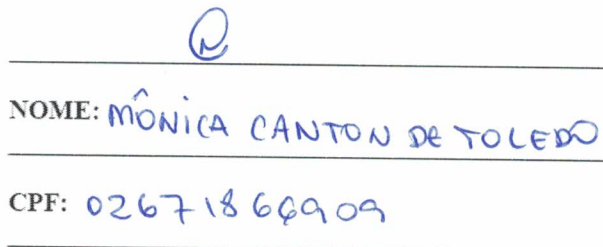 NOME: MÔNICA CANTON DE TOLEDO
CPF: 02671866909